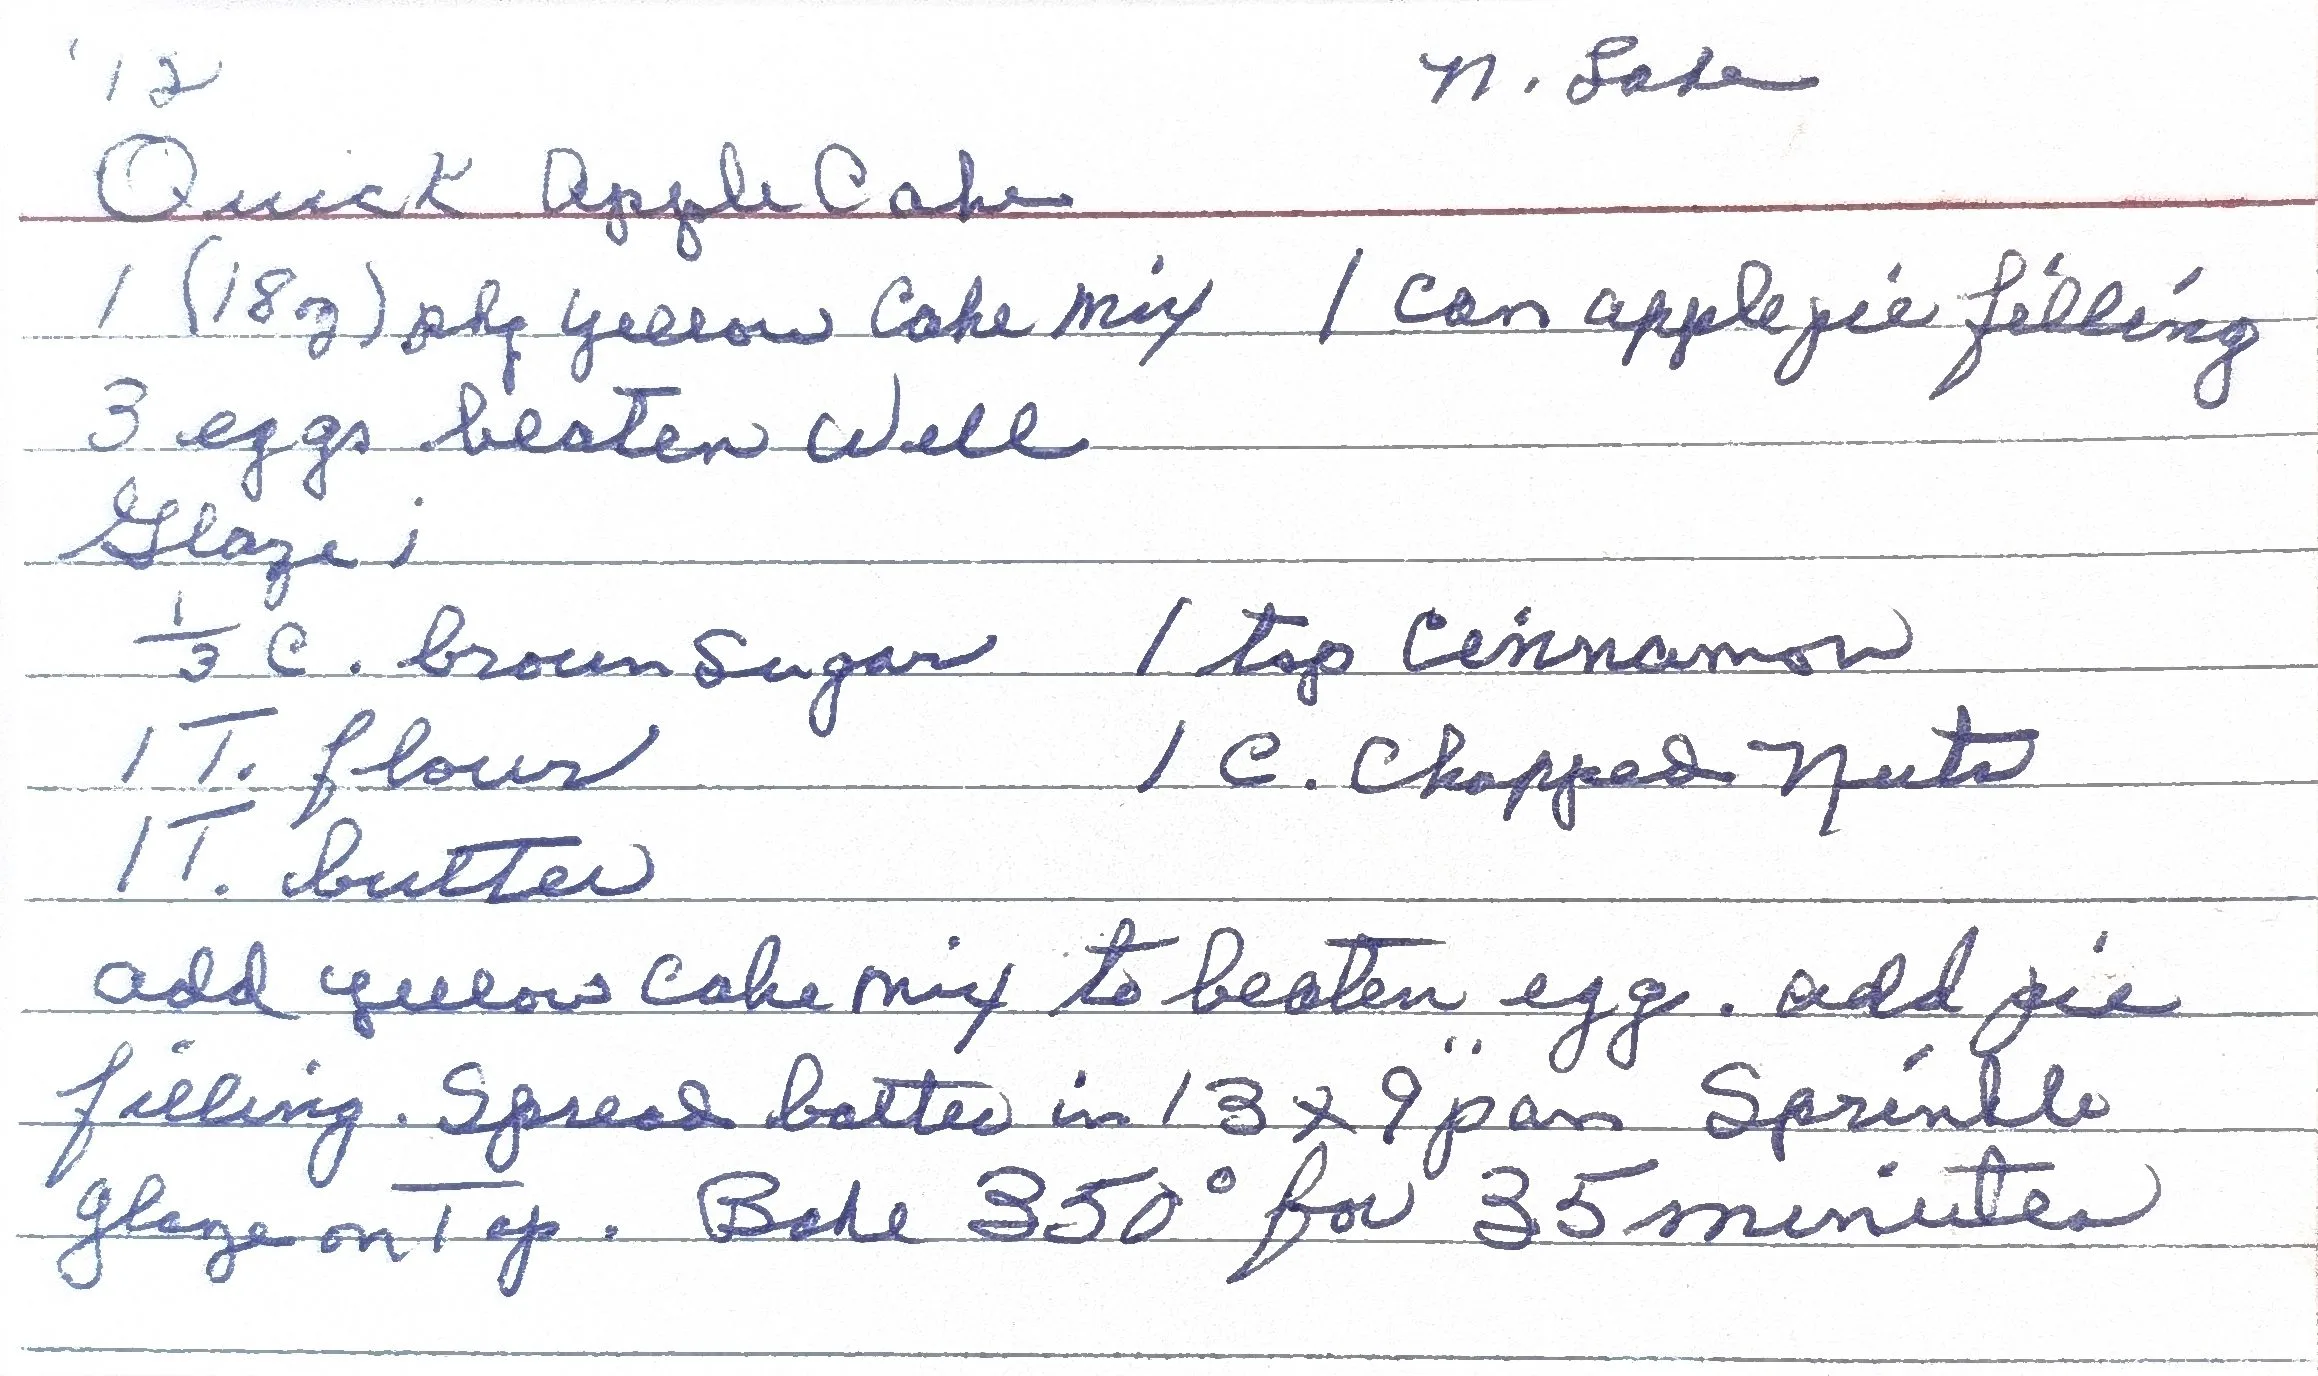 '12 N. Lake
Quick Apple Cake
1 (18 oz) pkg yellow Cake mix 1 can apple pie filling
3 eggs beaten well
Glaze;
1/3 C. brown sugar 1 tsp Cinnamon
1 T. flour 1 C. Chopped Nuts
1 T. butter
add yellow cake mix to beaten egg. add pie
filling. Spread batter in 13 x 9" pan Sprinkle
glaze on Top. Bake 350° for 35 minutes